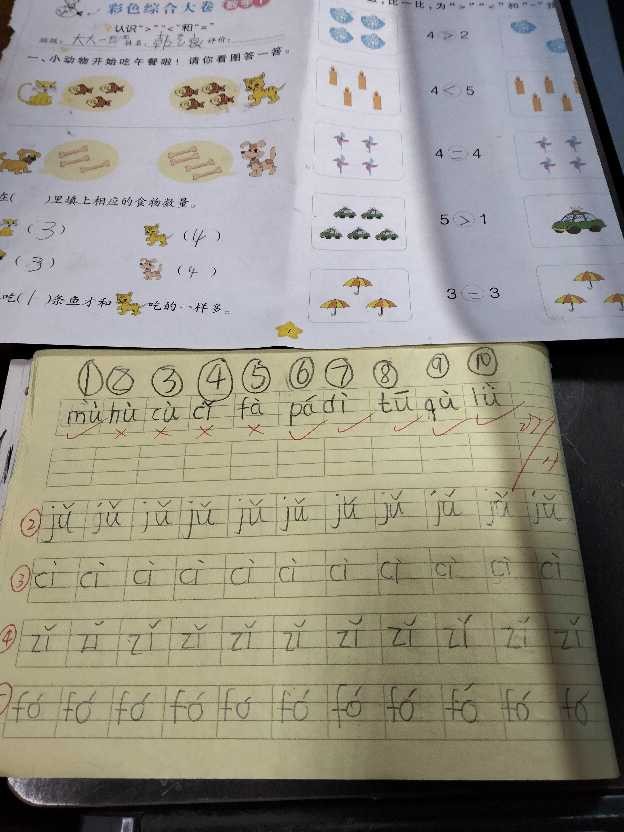 彩色综合大卷 数学1
认识">""<"和"="
一、小动物开始吃午餐啦！请你看图答一答。
在( )里填上相应的食物数量。
(3) (4)
(3) (4)
吃(1)条鱼才和 吃的一样多。
比一比,为">""<"和"="
4 > 2
4 < 5
4 = 4
5 > 1
3 = 3
① ② ③ ④ ⑤ ⑥ ⑦ ⑧ ⑨ ⑩
mù hù cù cǐ fà pá dì tū qù lǜ
② jǔ jǔ jǔ jǔ jǔ jǔ jǔ jǔ jǔ jǔ jǔ
③ cì cì cì cì cì cì cì cì cì cì cì
④ zǐ zǐ zǐ zǐ zǐ zǐ zǐ zǐ zǐ zǐ zǐ
fó fó fó fó fó fó fó fó fó fó fó